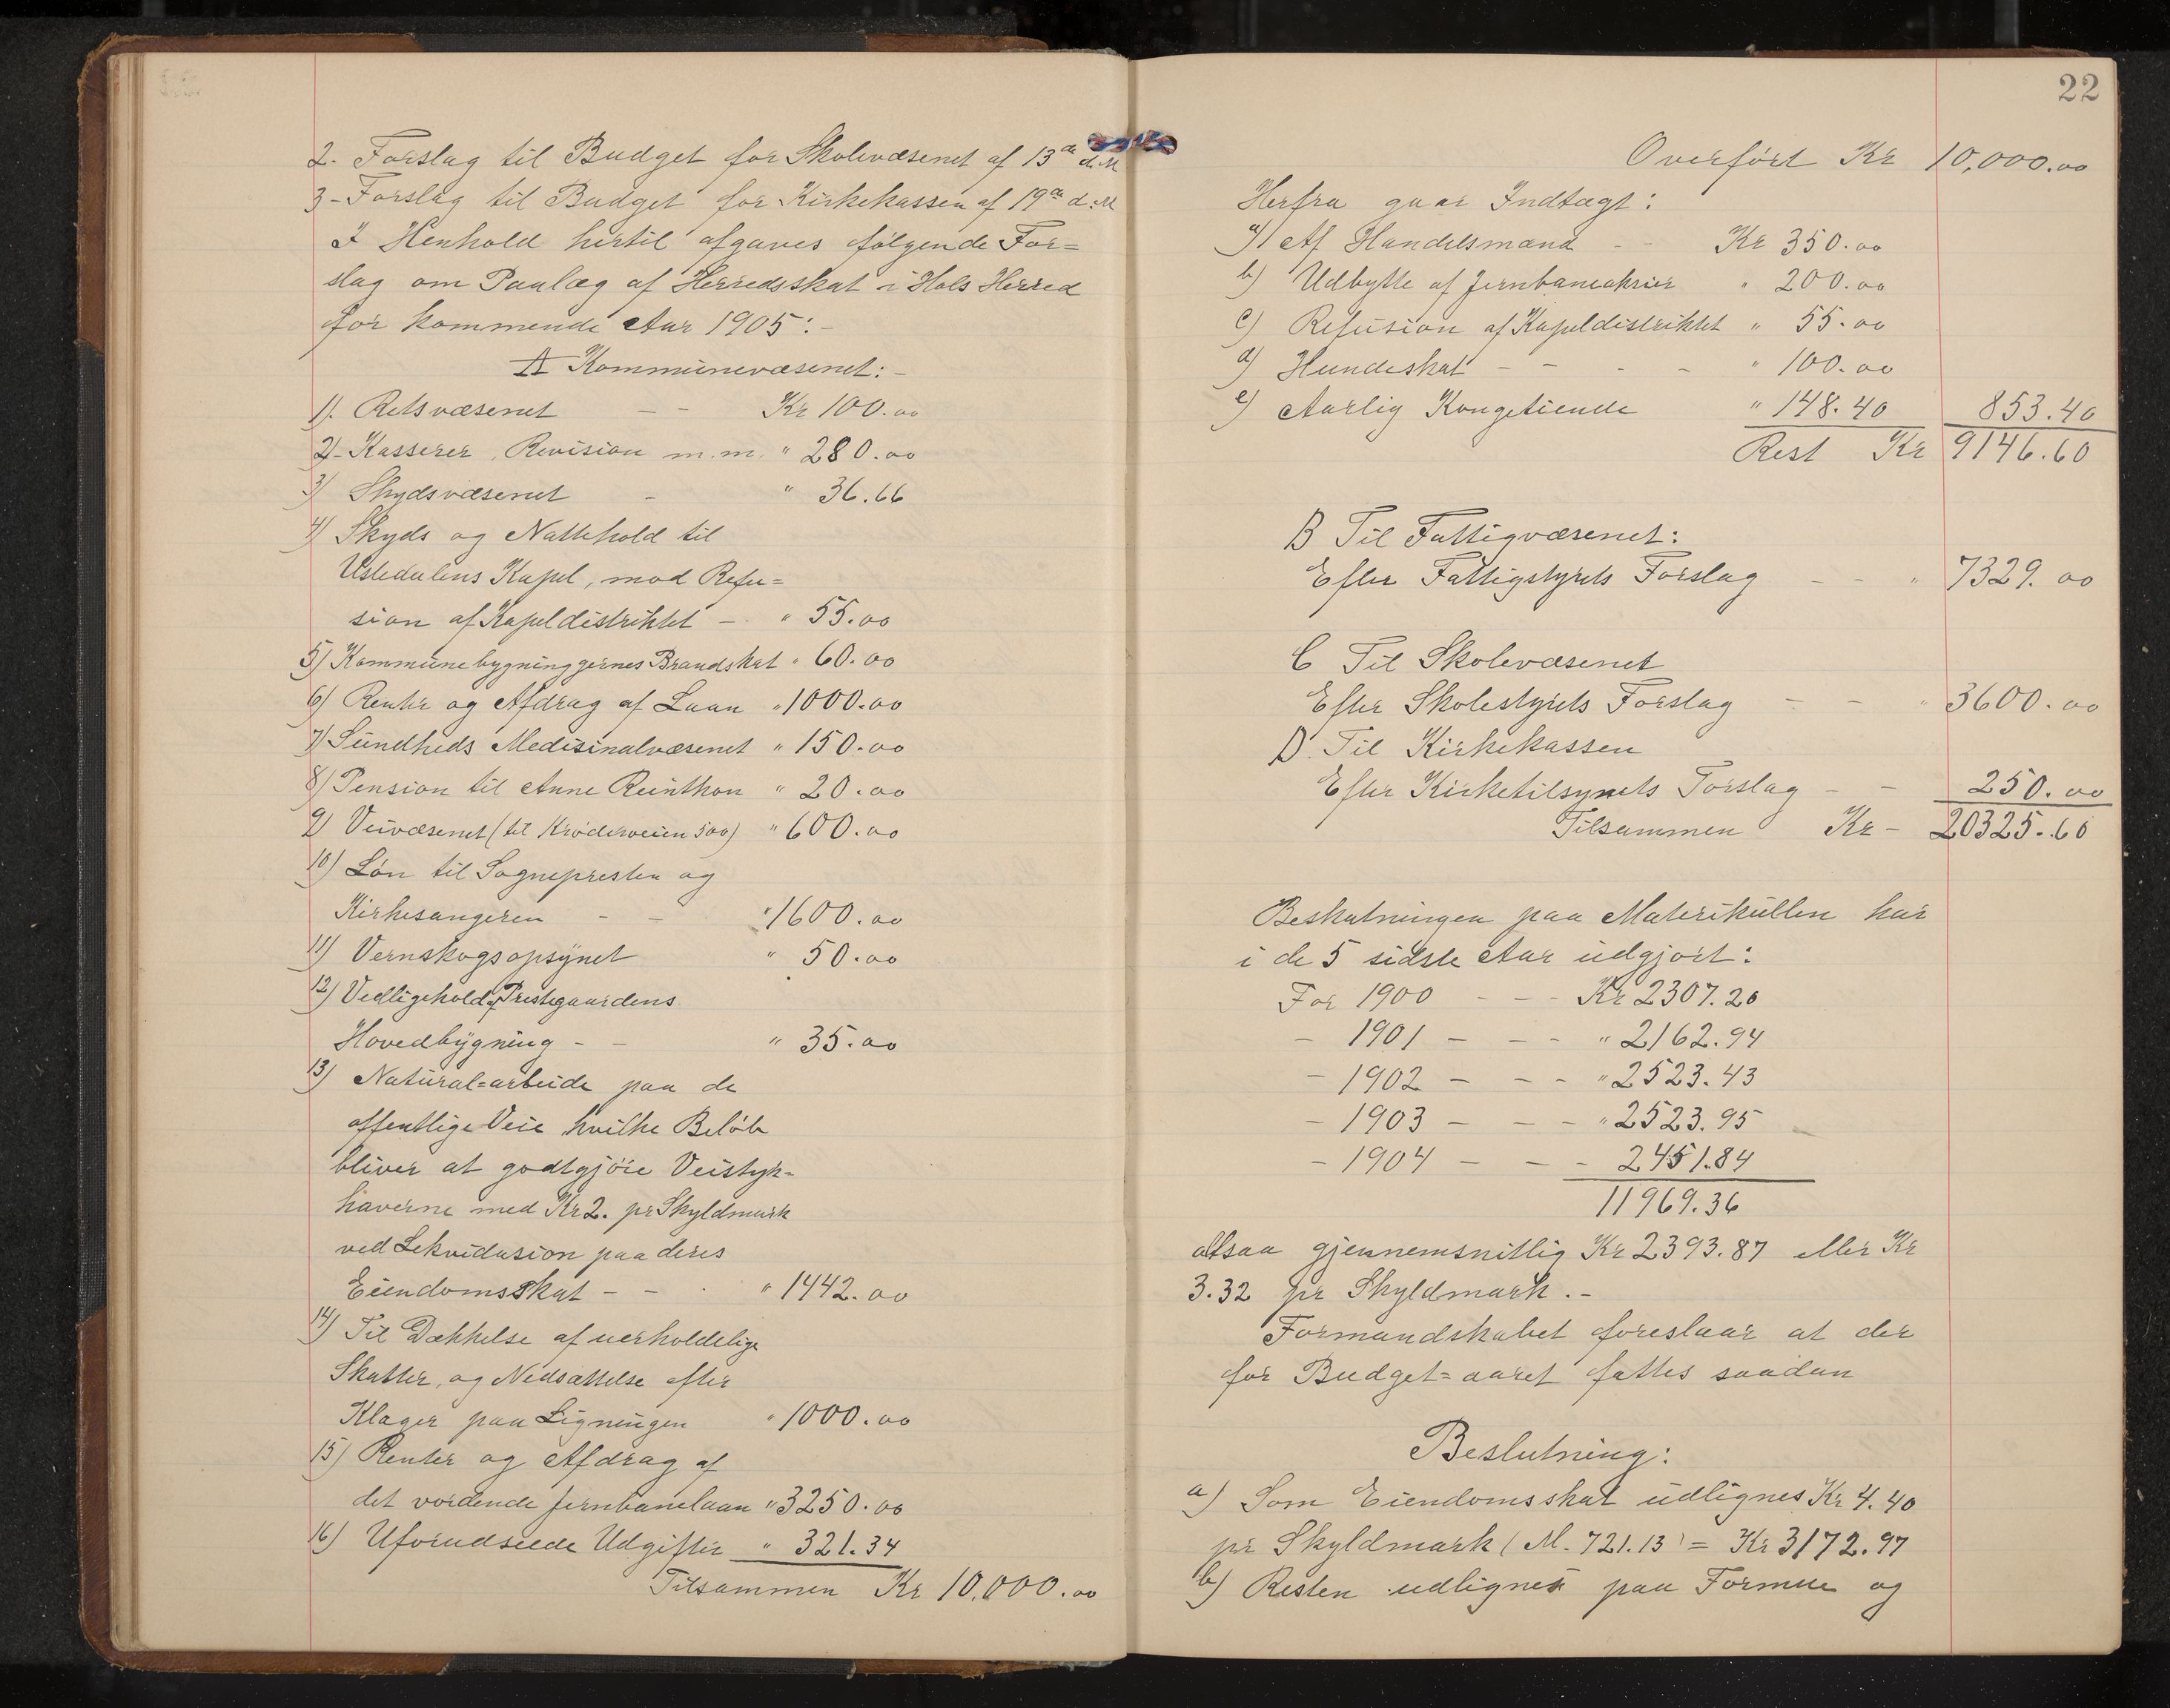 2. Forslag til Budget for Skolevæsenet af 13de d.M
3 - Forslag til Budget for Kirkekassen af 19de d.M
I Henhold hertil afgaves følgende For=
slag om Paalæg af Herredsskat i Hols Herred
for kommende Aar 1905:-
A Kommunevæsenet:-
1). Retsvæsenet - - Kr 100.00
2)- Kasserer, Revision m.m. " 280.00
3) Skydsvæsenet - " 36.66
4) Skyds og Nattehold til
Ustedalens Kapel, mod Refu=
sion af Kapeldistriktet - . " 55.00
5) Kommunebygninggernes Brandskat " 60.00
6) Renter og Afdrag af Laan " 1000.00
7) Sundheds Medisinalvæsenet " 150.00
8) Pension til Anne Reinthon " 20.00
9) Veivæsenet (til Krøderveien 500) " 600.00
10) Løn til Sognepresten og
Kirkesangeren - - " 1600.00
11) Vernskogsopsynet " 50.00
12) Vedligehold af Prestegaardens
Hovedbygning - - " 35.00
13) Natural=arbeide paa de
offentlige Veie hvilke Beløb
bliver at godtgjøre Veistyk-
haverne med Kr 2. pr Skyldmark
ved Lekvidasion paa deres
Eiendomsskat - - . " 1442.00
14) Til Dækkelse af uerholdelige
Skatter, og Nedsættelse efter
Klager paa Ligningen " 1000.00
15) Renter og Afdrag af
det vordende Jernbanelaan " 3250.00
16) Uforudseede Udgifter " 321.34
Tilsammen Kr 10,000.00
22
Overført Kr 10,000.00
Herfra gaar Indtægt:
a) Af Handelsmænd - - Kr 350.00
b) Udbytte af Jernbaneaksier " 200.00
c) Refusion af Kapeldistriktet " 55.00
d) Hundeskat - - - - " 100.00
e) Aarlig Kongetiende " 148.40 853.40
Rest Kr 9146.60
B Til Fattigvæsenet:
Efter Fattigstyrets Forslag - - " 7329.00
C Til Skolevæsenet
Efter Skolestyrets Forslag - - " 3600.00
D. Til Kirkekassen
Efter Kirketilsynets Forslag - - 250.00
Tilsammen Kr - 20325.60
Beskatningen paa Materikullen har
i de 5 sidste Aar udgjort:
For 1900 - - - Kr 2307.20
- 1901 - - - " 2162.94
- 1902 - - - " 2523.43
- 1903 - - - " 2523.95
- 1904 - - - 2451.84
11969.36
altsaa gjennemsnitlig Kr 2393.87 eller Kr
3.32 pr Skyldmark.-
Formandskabet foreslaar at der
for Budget=aaret fattes saadan
Beslutning:
a) Som Eiendomsskat udlignes Kr 4.40
pr Skyldmark (M. 721.13) = Kr 3172.97
b) Resten udlignes paa Formue og